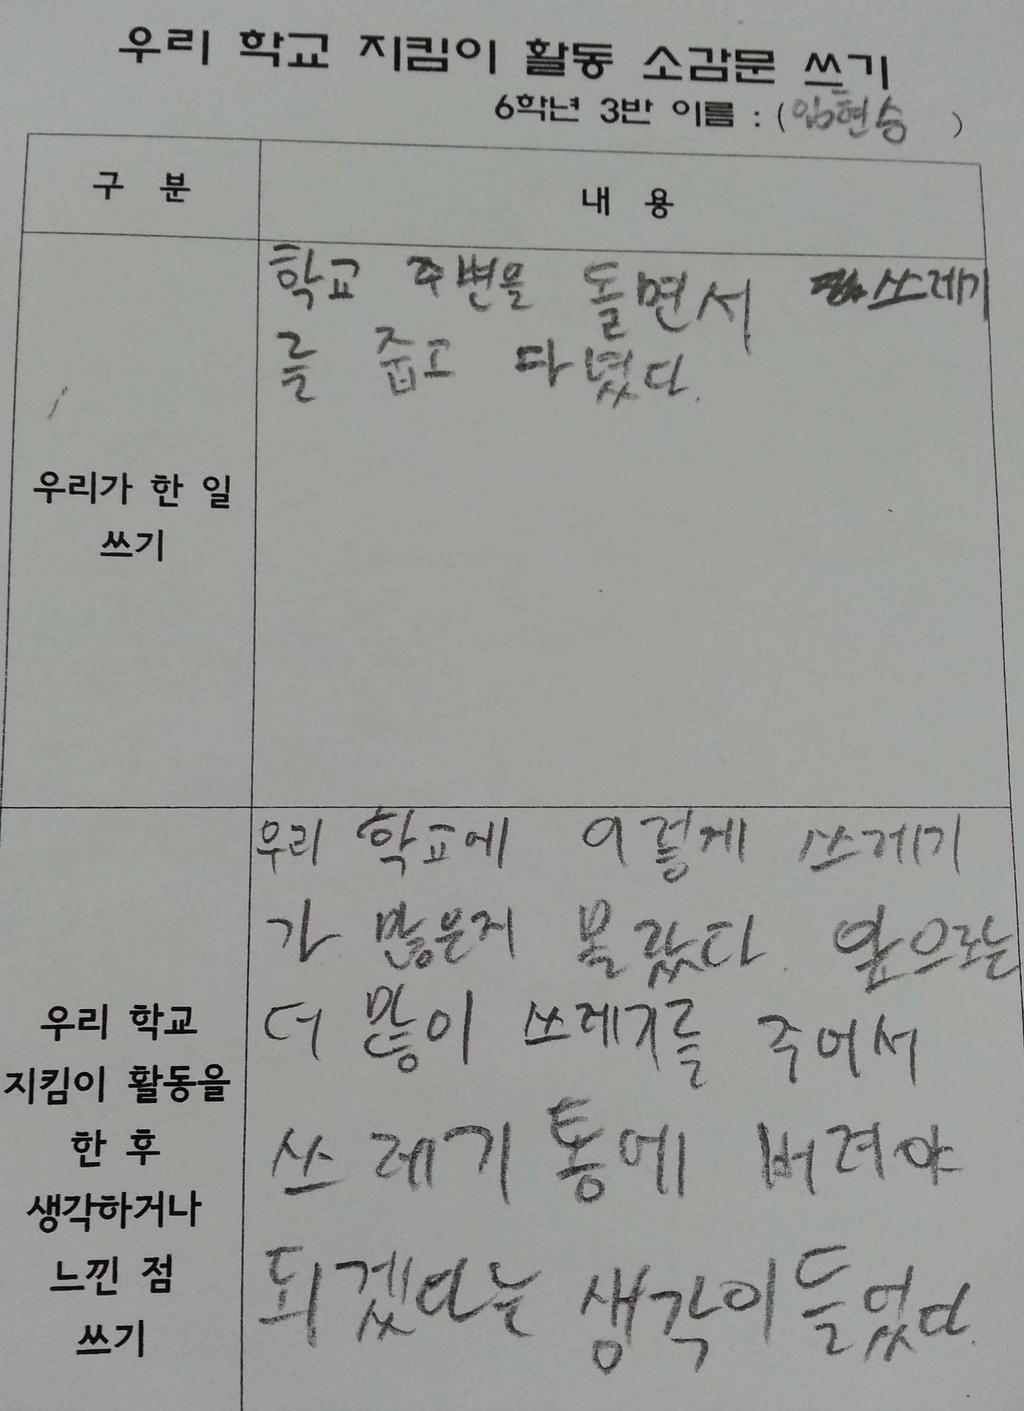 우리 학교 지킴이 활동 소감문 쓰기
6학년 3반 이름 : (임현승 )
구 분
내 용
우리가 한 일
쓰기
학교 주변을 돌면서 쓰레기
를 줍고 다녔다.
우리 학교
지킴이 활동을
한 후
생각하거나
느낀 점
쓰기
우리 학교에 이렇게 쓰레기
가 많은지 몰랐다. 앞으로는
더 많이 쓰레기를 주어서
쓰레기통에 버려야
되겠다는 생각이 들었다.